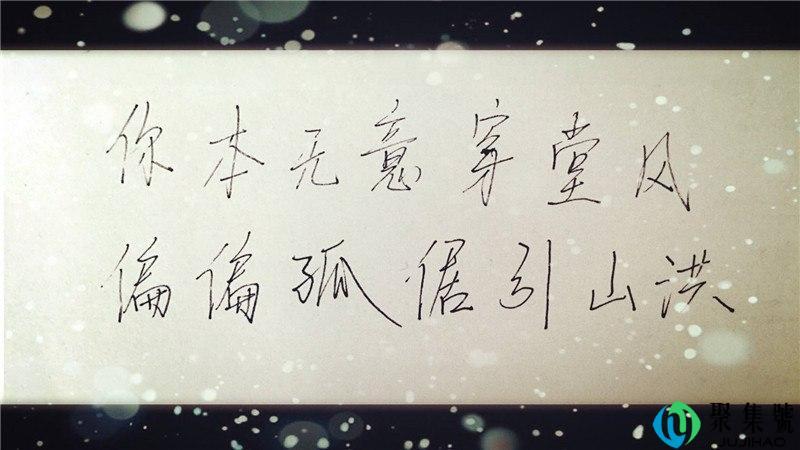 你本无意穿堂风
偏偏孤倨引山洪
聚集號
JUJIHAO